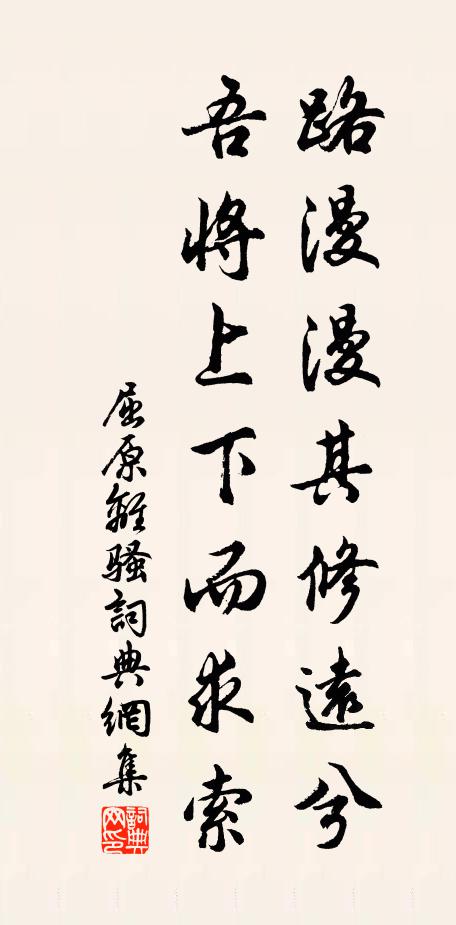 路漫漫其修遠兮
吾將上下而求索
屈原離騷詞典網集
詞典网印